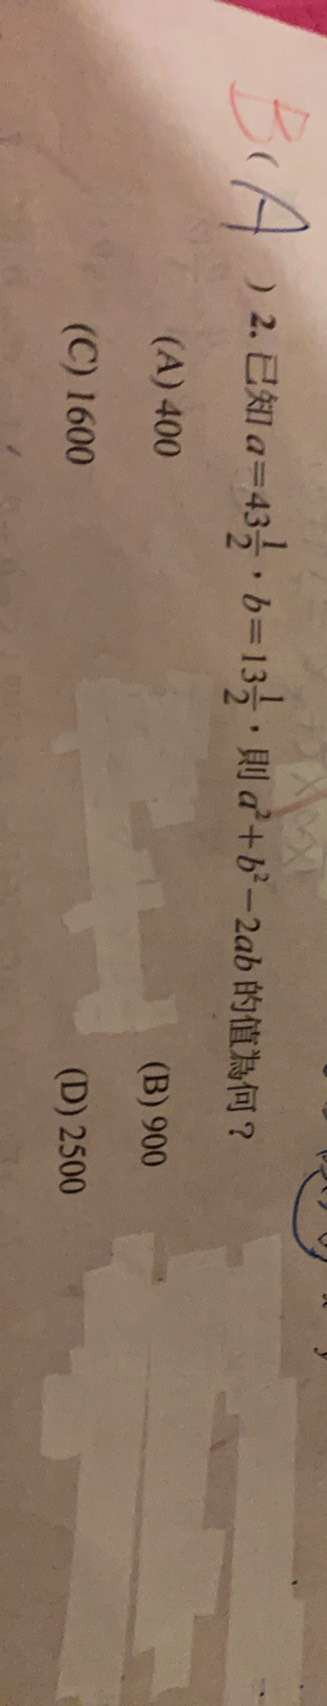 B
( A ) 2. 已知 a=43\frac{1}{2}，b=13\frac{1}{2}，則 a²+b²−2ab 的值為何？
(A) 400 (B) 900
(C) 1600 (D) 2500